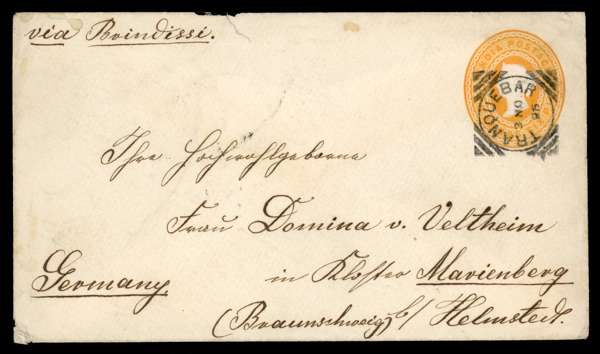 via Brindissi.
INDIA POSTAGE
TRANQUEBAR
3 NO
95
Ihre Hochwohlgeborne
Frau Domina v. Veltheim
in Kloster Marienberg
Germany
(Braunschweig) b/ Helmstedt.